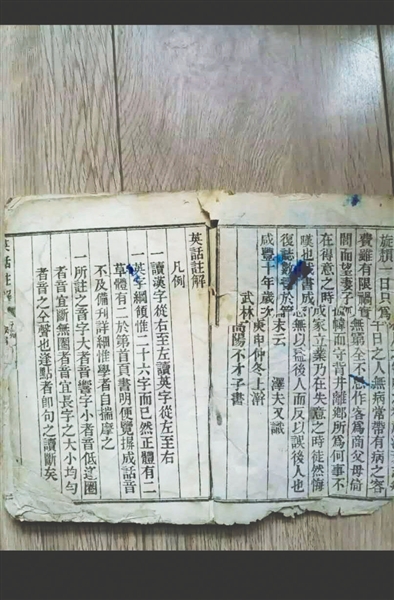 旋頹一日只爲千日之人無病常帶有病之容
費雖有限禍實無窮全不作客爲商父母倚
閭而望妻子幃而守背井離鄉所爲何事不
在得意之時成家立業乃在失意之時徒然悔
嘆也茲書成無以益後人而反以誤後人也
復誌數於篇末云 澤夫又識
咸豐十年歲次庚申仲冬上澣
武林高陽不才子書
英話註解
凡例
一讀漢字從右至左讀英字從左至右
一英字綱領惟二十六字而已然正體有二
草體有二於第首頁書明便覽揖成話音
不及備刋詳細惟學者自揣摩之
一所註之音字大者音響字小者音低逐圈
者音宜斷無圈者音宜長字之大小均勻
者音之全聲也逢點者即句之讀斷矣
英話註解